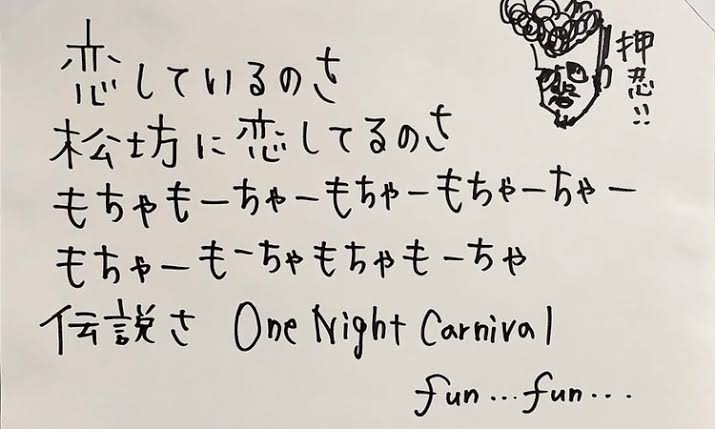 押忍!!
恋しているのさ
松坊に恋してるのさ
もちゃもーちゃーもちゃーもちゃーちゃー
もちゃーもーちゃもちゃもーちゃ
伝説さ One Night Carnival
fun...fun...